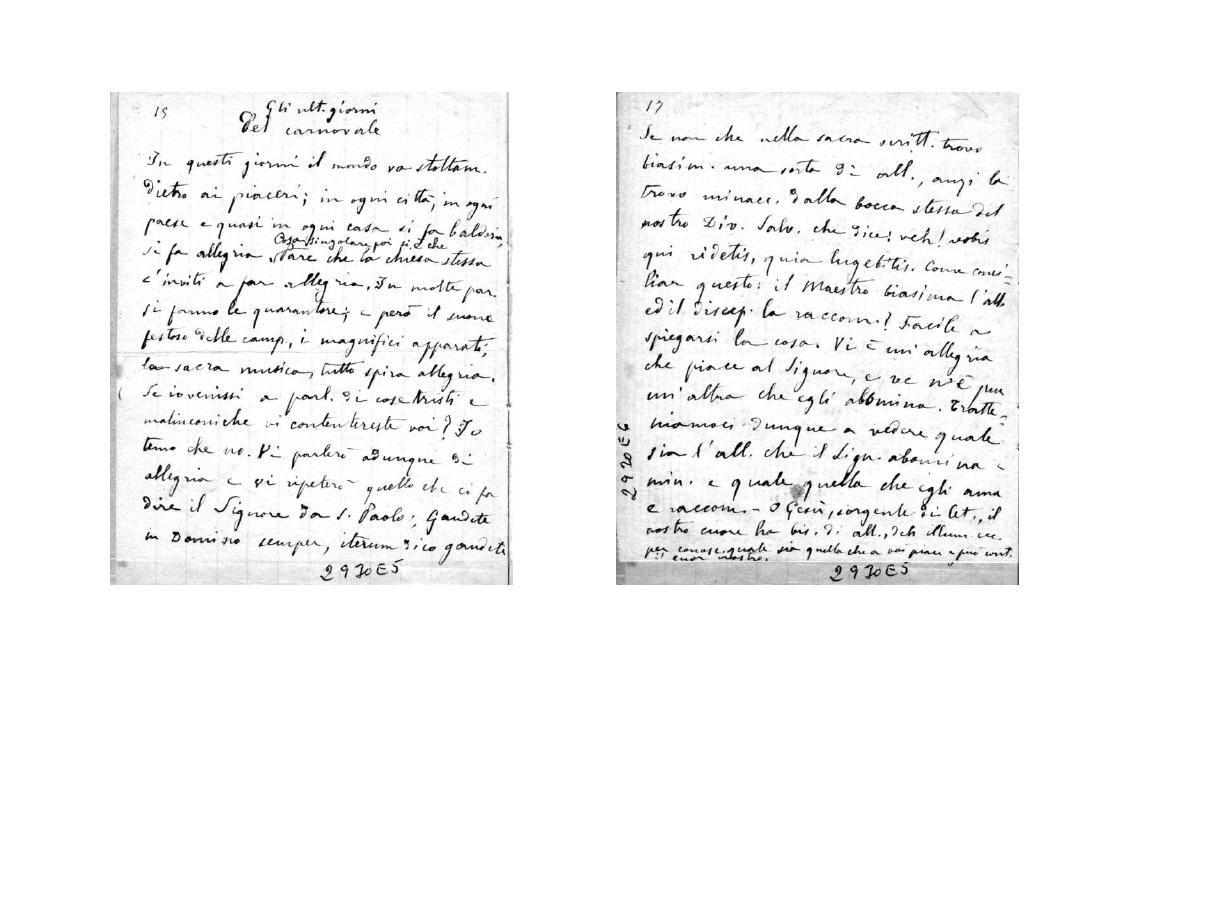 15
Gli ult. giorni
Del carnovale
In questi giorni il mondo va stoltam.
dietro ai piaceri; in ogni città, in ogni
paese e quasi in ogni casa si fa baldoria,
Cosa singolare poi si è che
si fa allegria. Pare che la chiesa stessa
c'inviti a far allegria. In molte par.
si fanno le quarantore; e però il suono
festoso delle camp., i magnifici apparati,
la sacra musica, tutto spira allegria.
Se io venissi a parl. di cose tristi e
malinconiche vi contentereste voi? Io
temo che no. Vi parlerò adunque di
allegria e vi ripeterò quello che ci fa
dire il Signore da S. Paolo: Gaudete
in Domino semper, iterum dico gaudete
2930E5
17
Se non che nella sacra scritt. trovo
biasim. una sorta di all., anzi la
trovo minacc. dalla bocca stessa del
nostro Div. Salv. che dice: veh! vobis
qui ridetis, quia lugebitis. Come conci=
liar questo: il Maestro biasima l'all.
ed il discep. la raccom.? Facile a
spiegarsi la cosa. Vi è un'allegria
che piace al Signore, e ve n'è pur
un'altra che egli abbomina. Tratte=
niamoci dunque a vedere quale
sia l'all. che il Sign. abomina e
min. e quale quella che egli ama
e raccom. - O Gesù, sorgente di let., il
nostro cuore ha bis. di all., deh illum. ecc
per conosc. quale sia quella che a voi piace e può cont.
il cuor nostro.
2930E6
2930E5